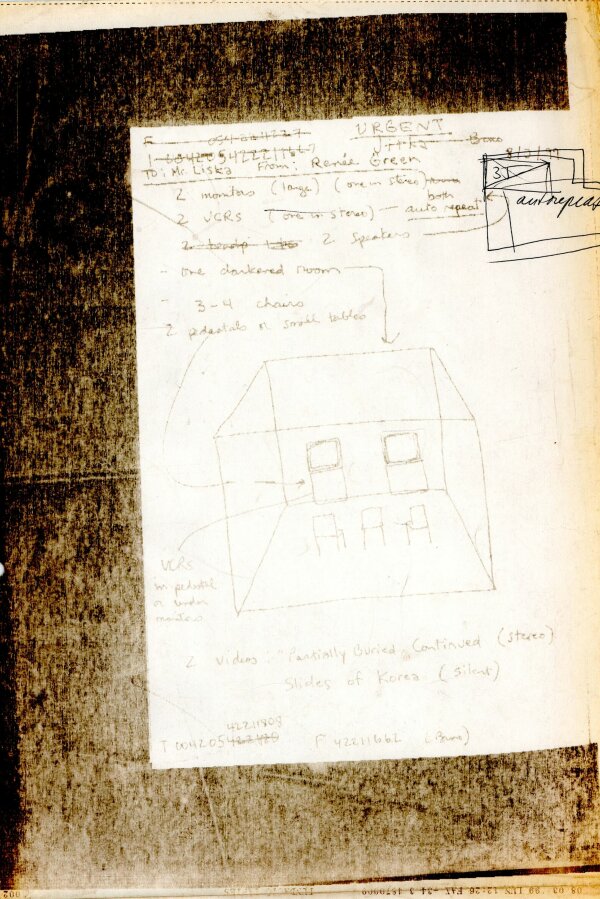 URGENT
Jitka
Brno
To: Mr. Liska From: Renée Green
2 monitors (large) (one in stereo)
both
3.
autorepeat
2 VCRS (one in stereo) - auto repeat
2 Speakers
- one darkened room
- 3-4 chairs
2 pedestals or small tables
VCRs
in pedestal
or under
monitors
2 Videos: "Partially Buried Continued (stereo)
Slides of Korea (silent)
42211808
T 0042054
F 42211662 (Brno)
002